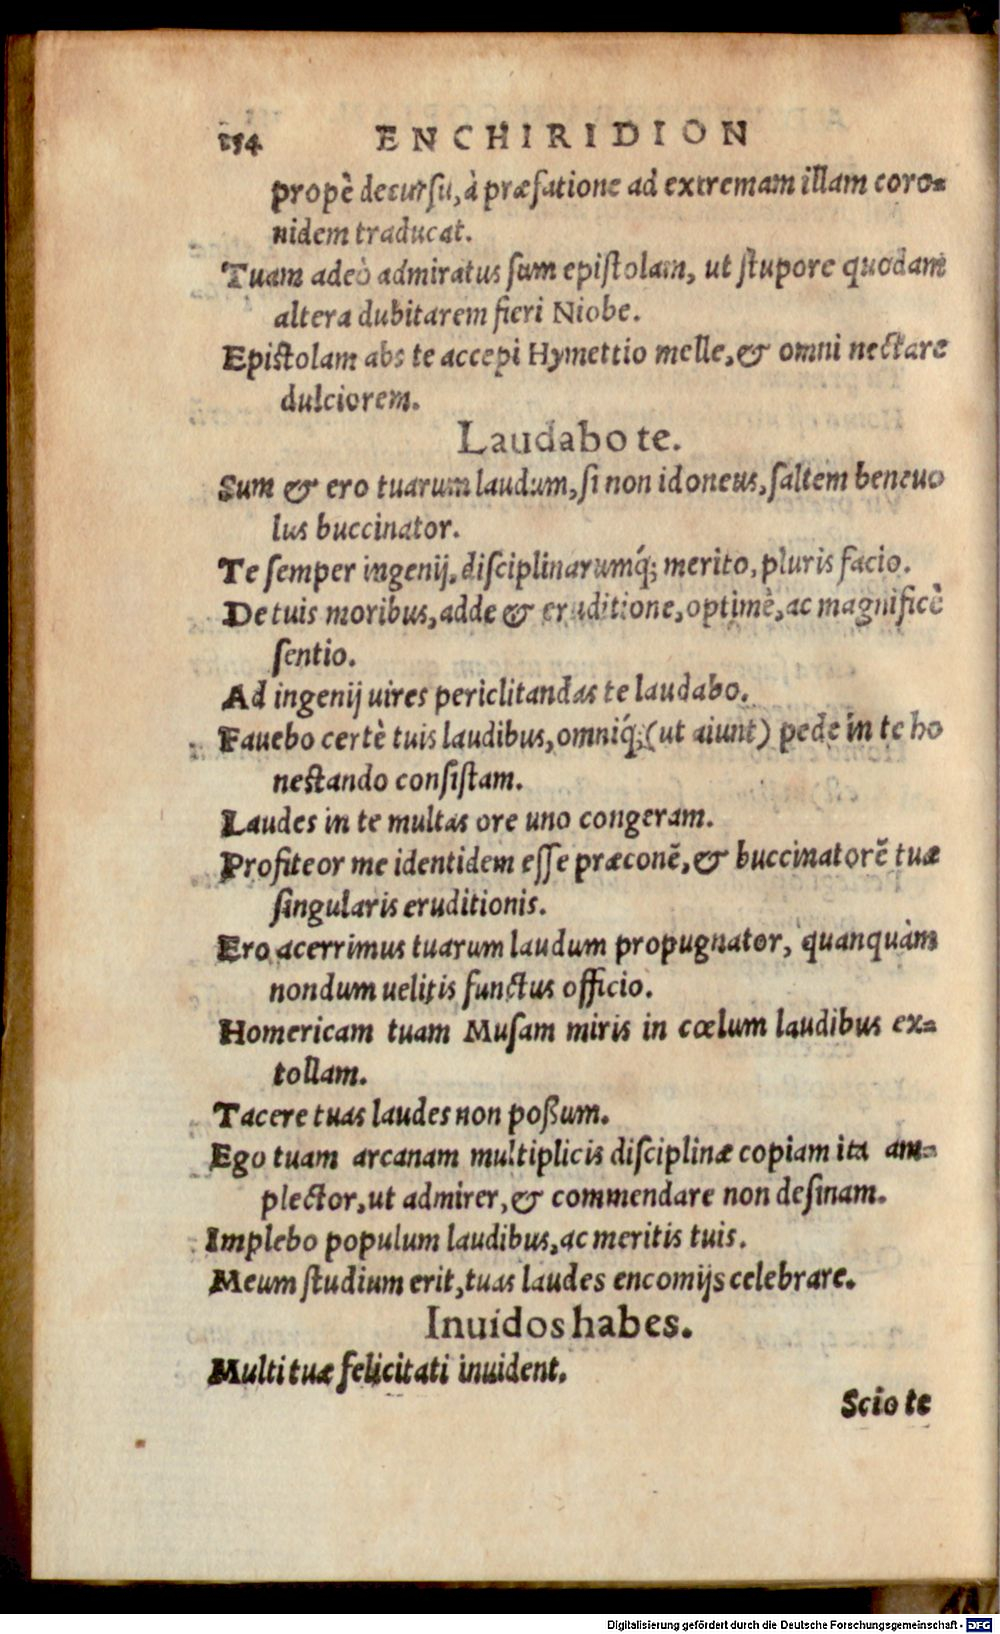 154 ENCHIRIDION
propè decursu, à præfatione ad extremam illam coro=
nidem traducat.
Tuam adeò admiratus sum epistolam, ut stupore quodam
altera dubitarem fieri Niobe.
Epistolam abs te accepi Hymettio melle, & omni nectare
dulciorem.
Laudabo te.
Sum & ero tuarum laudum, si non idoneus, saltem beneuo
lus buccinator.
Te semper ingenij, disciplinarumq́; merito, pluris facio.
De tuis moribus, adde & eruditione, optimè, ac magnificè
sentio.
Ad ingenij uires periclitandas te laudabo.
Fauebo certè tuis laudibus, omniq́; (ut aiunt) pede in te ho
nestando consistam.
Laudes in te multas ore uno congeram.
Profiteor me identidem esse præconē, & buccinatorē tuæ
singularis eruditionis.
Ero acerrimus tuarum laudum propugnator, quanquàm
nondum uelitis functus officio.
Homericam tuam Musam miris in cœlum laudibus ex=
tollam.
Tacere tuas laudes non poßum.
Ego tuam arcanam multiplicis disciplinæ copiam ita am=
plector, ut admirer, & commendare non desinam.
Implebo populum laudibus, ac meritis tuis.
Meum studium erit, tuas laudes encomijs celebrare.
Inuidos habes.
Multi tuæ felicitati inuident.
Scio te
Digitalisierung gefördert durch die Deutsche Forschungsgemeinschaft - DFG